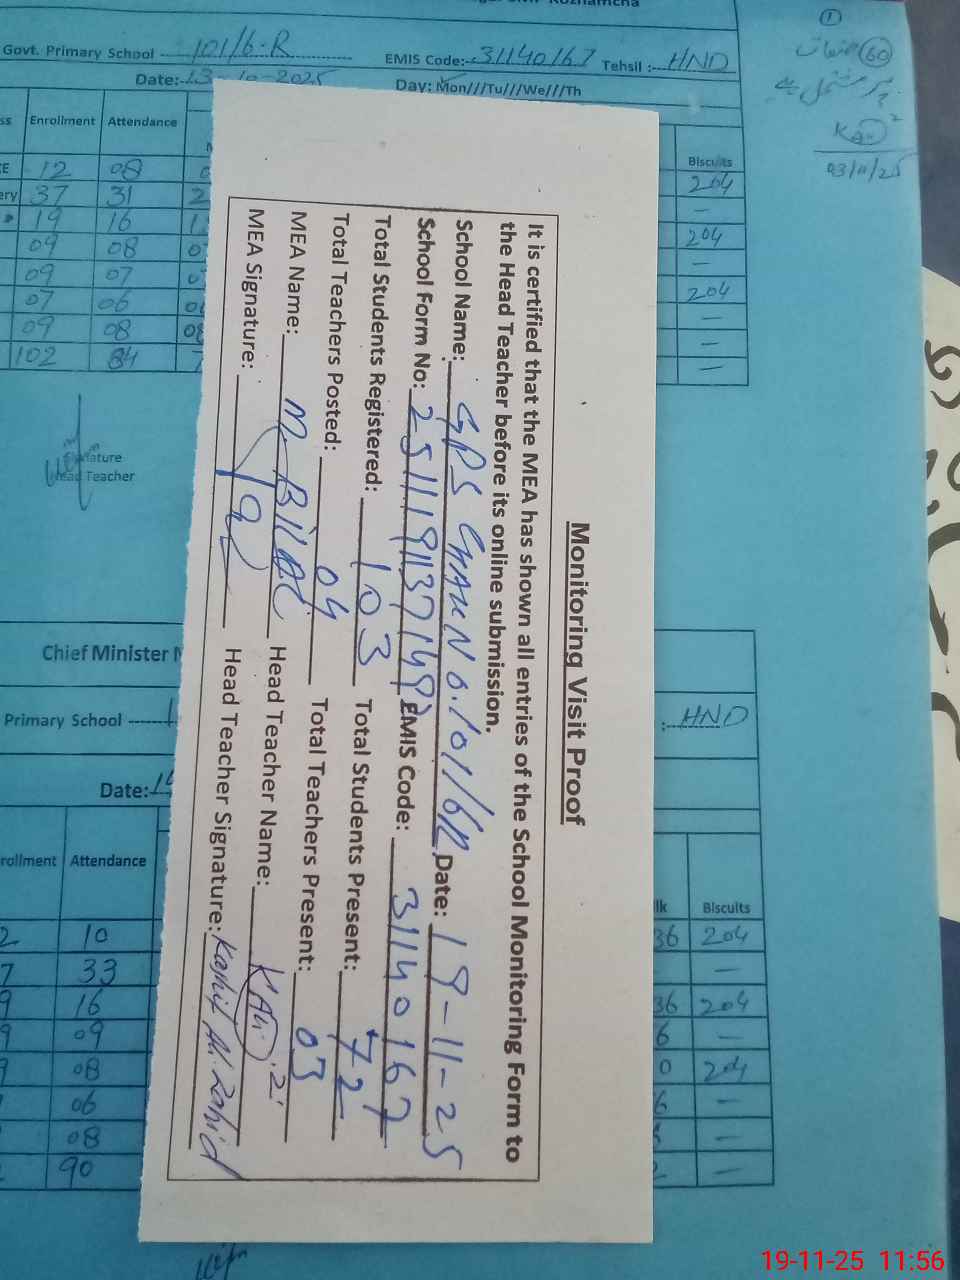 Govt. Primary School 101/6-R EMIS Code:- 31140167 Tehsil :- HND
Date:- 13-10-2025 Day: Mon///Tu///We///Th
Enrollment Attendance Biscuits
12 08 204
37 31 —
19 16 204
09 08 —
09 07 204
07 06 —
09 08 —
102 84 —
Head Teacher
①
60
KAli 2
03/11/25
Monitoring Visit Proof
It is certified that the MEA has shown all entries of the School Monitoring Form to
the Head Teacher before its online submission.
School Name: GPS Chak No. 101/6R Date: 19-11-25
School Form No: EMIS Code: 31140167
Total Students Registered: 103 Total Students Present: 72
Total Teachers Posted: 04 Total Teachers Present: 03
MEA Name: M. Bilal Head Teacher Name: KAli.2
MEA Signature: Head Teacher Signature: Kashif Ali Zahid
Chief Minister
Primary School HND
Date:-
Attendance Biscuits
10 36 204
33 —
16 36 204
09 —
08 204
06 —
08 —
90 —
19-11-25 11:56